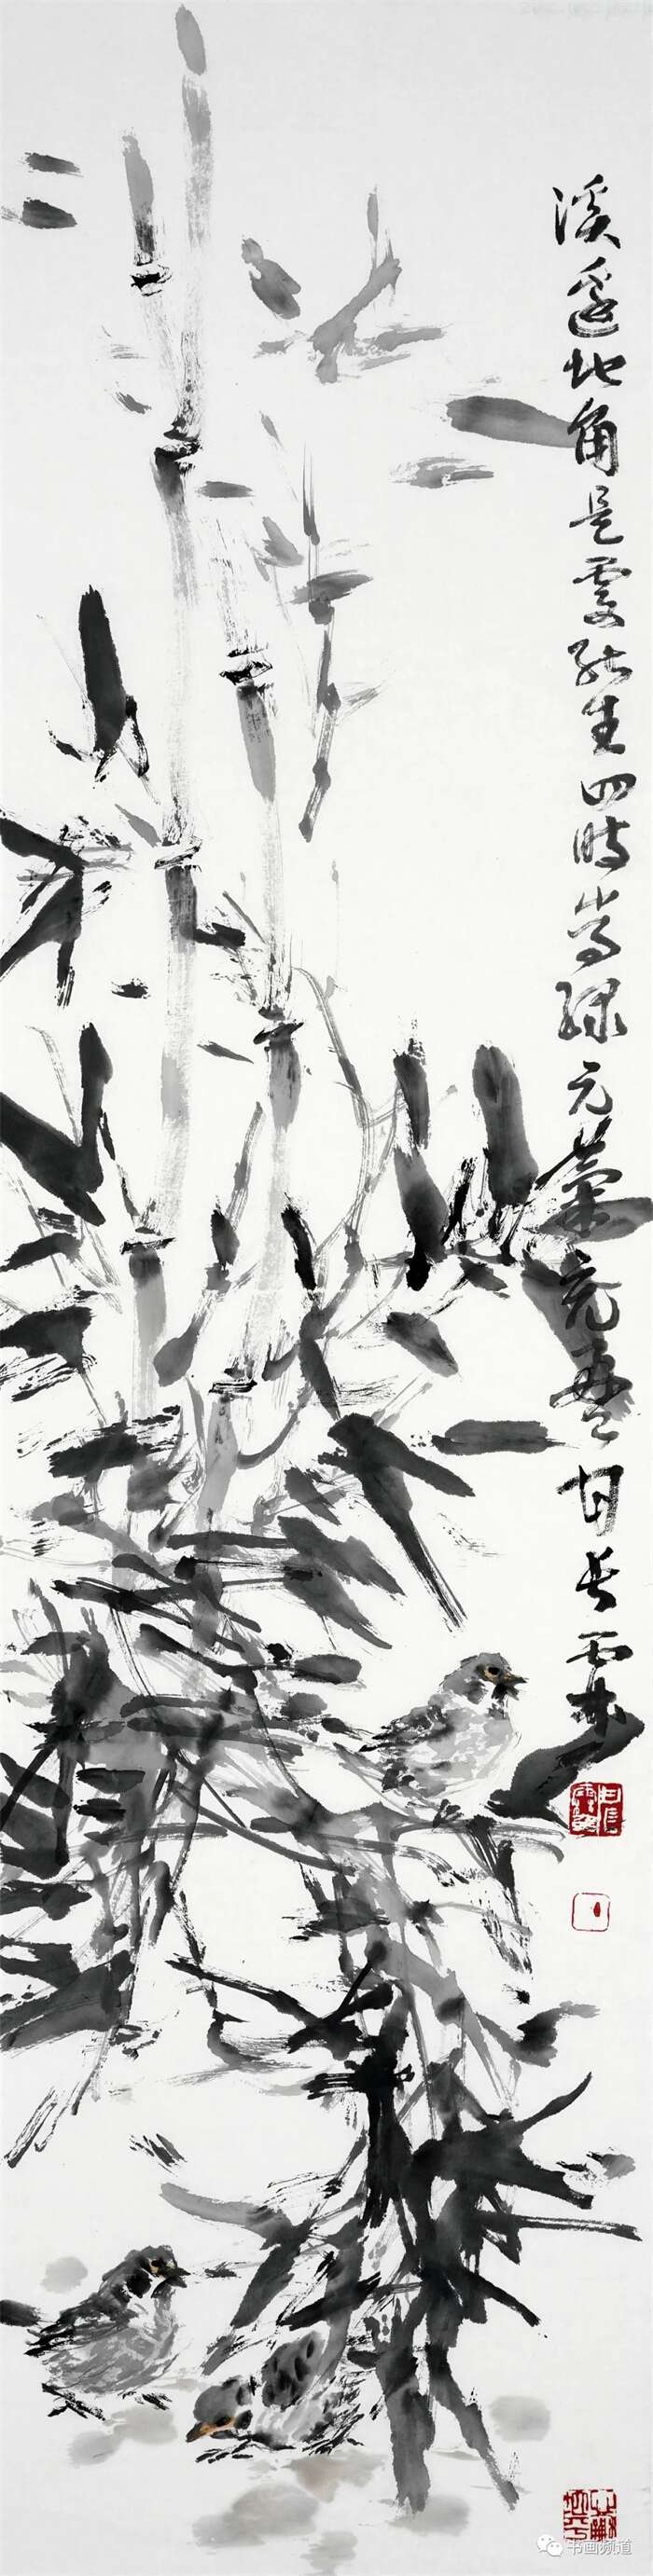 溪邊地角是處能生四時常綠元氣充盈甘長霖
书画频道